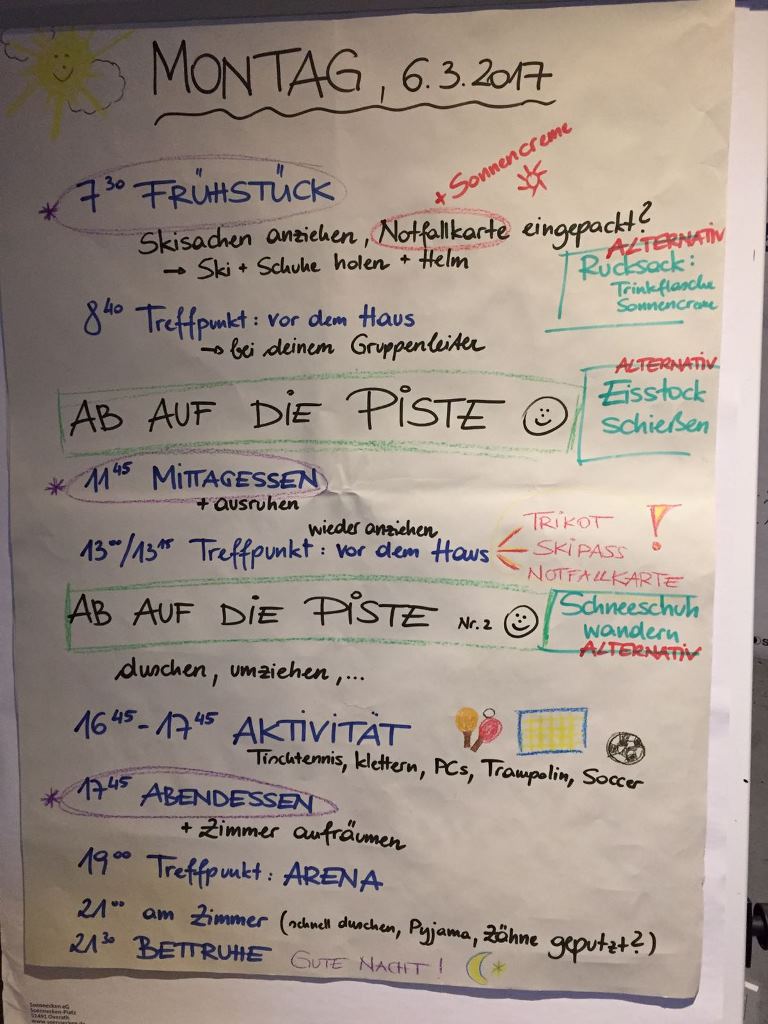 MONTAG, 6.3.2017
7³⁰ FRÜHSTÜCK
+ Sonnencreme
Skisachen anziehen, Notfallkarte eingepackt?
→ Ski + Schuhe holen + Helm
ALTERNATIV
Rucksack:
Trinkflasche
Sonnencreme
8⁴⁰ Treffpunkt: vor dem Haus
→ bei deinem Gruppenleiter
AB AUF DIE PISTE
ALTERNATIV
Eisstock
schießen
* 11⁴⁵ MITTAGESSEN
+ ausruhen
wieder anziehen
13⁰⁰/13¹⁵ Treffpunkt: vor dem Haus
TRIKOT
SKIPASS
NOTFALLKARTE
!
AB AUF DIE PISTE Nr. 2
Schneeschuh
wandern
ALTERNATIV
duschen, umziehen,...
16⁴⁵-17⁴⁵ AKTIVITÄT
Tischtennis, klettern, PCs, Trampolin, Soccer
* 17⁴⁵ ABENDESSEN
+ Zimmer aufräumen
19⁰⁰ Treffpunkt: ARENA
21⁰⁰ am Zimmer (schnell duschen, Pyjama, Zähne geputzt?)
21³⁰ BETTRUHE GUTE NACHT!
Soennecken eG
Soennecken-Platz
51491 Overath
www.soennecken.de